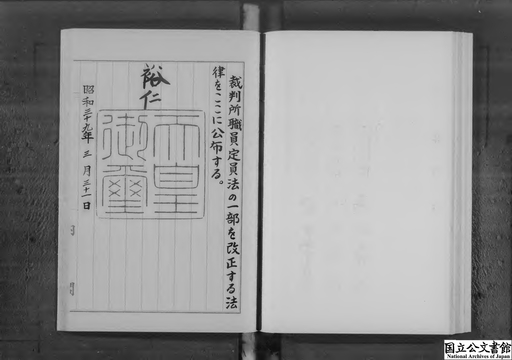 裁判所職員定員法の一部を改正する法
律をここに公布する。
裕仁
天皇
御璽
昭和三十九年三月三十一日
国立公文書館
National Archives of Japan